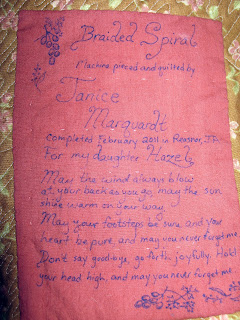 Braided Spiral
Machine pieced and quilted by
Janice
Marquardt
Completed February 2011 in Rantoul, IL
For my daughter Hazel,
May the wind always blow
at your back as you go, may the sun
shine warm on your way.
May your footsteps be sure, and your
heart be pure, and may you never forget me.
Don't say good-bye, go forth joyfully. Hold
your head high, and may you never forget me.